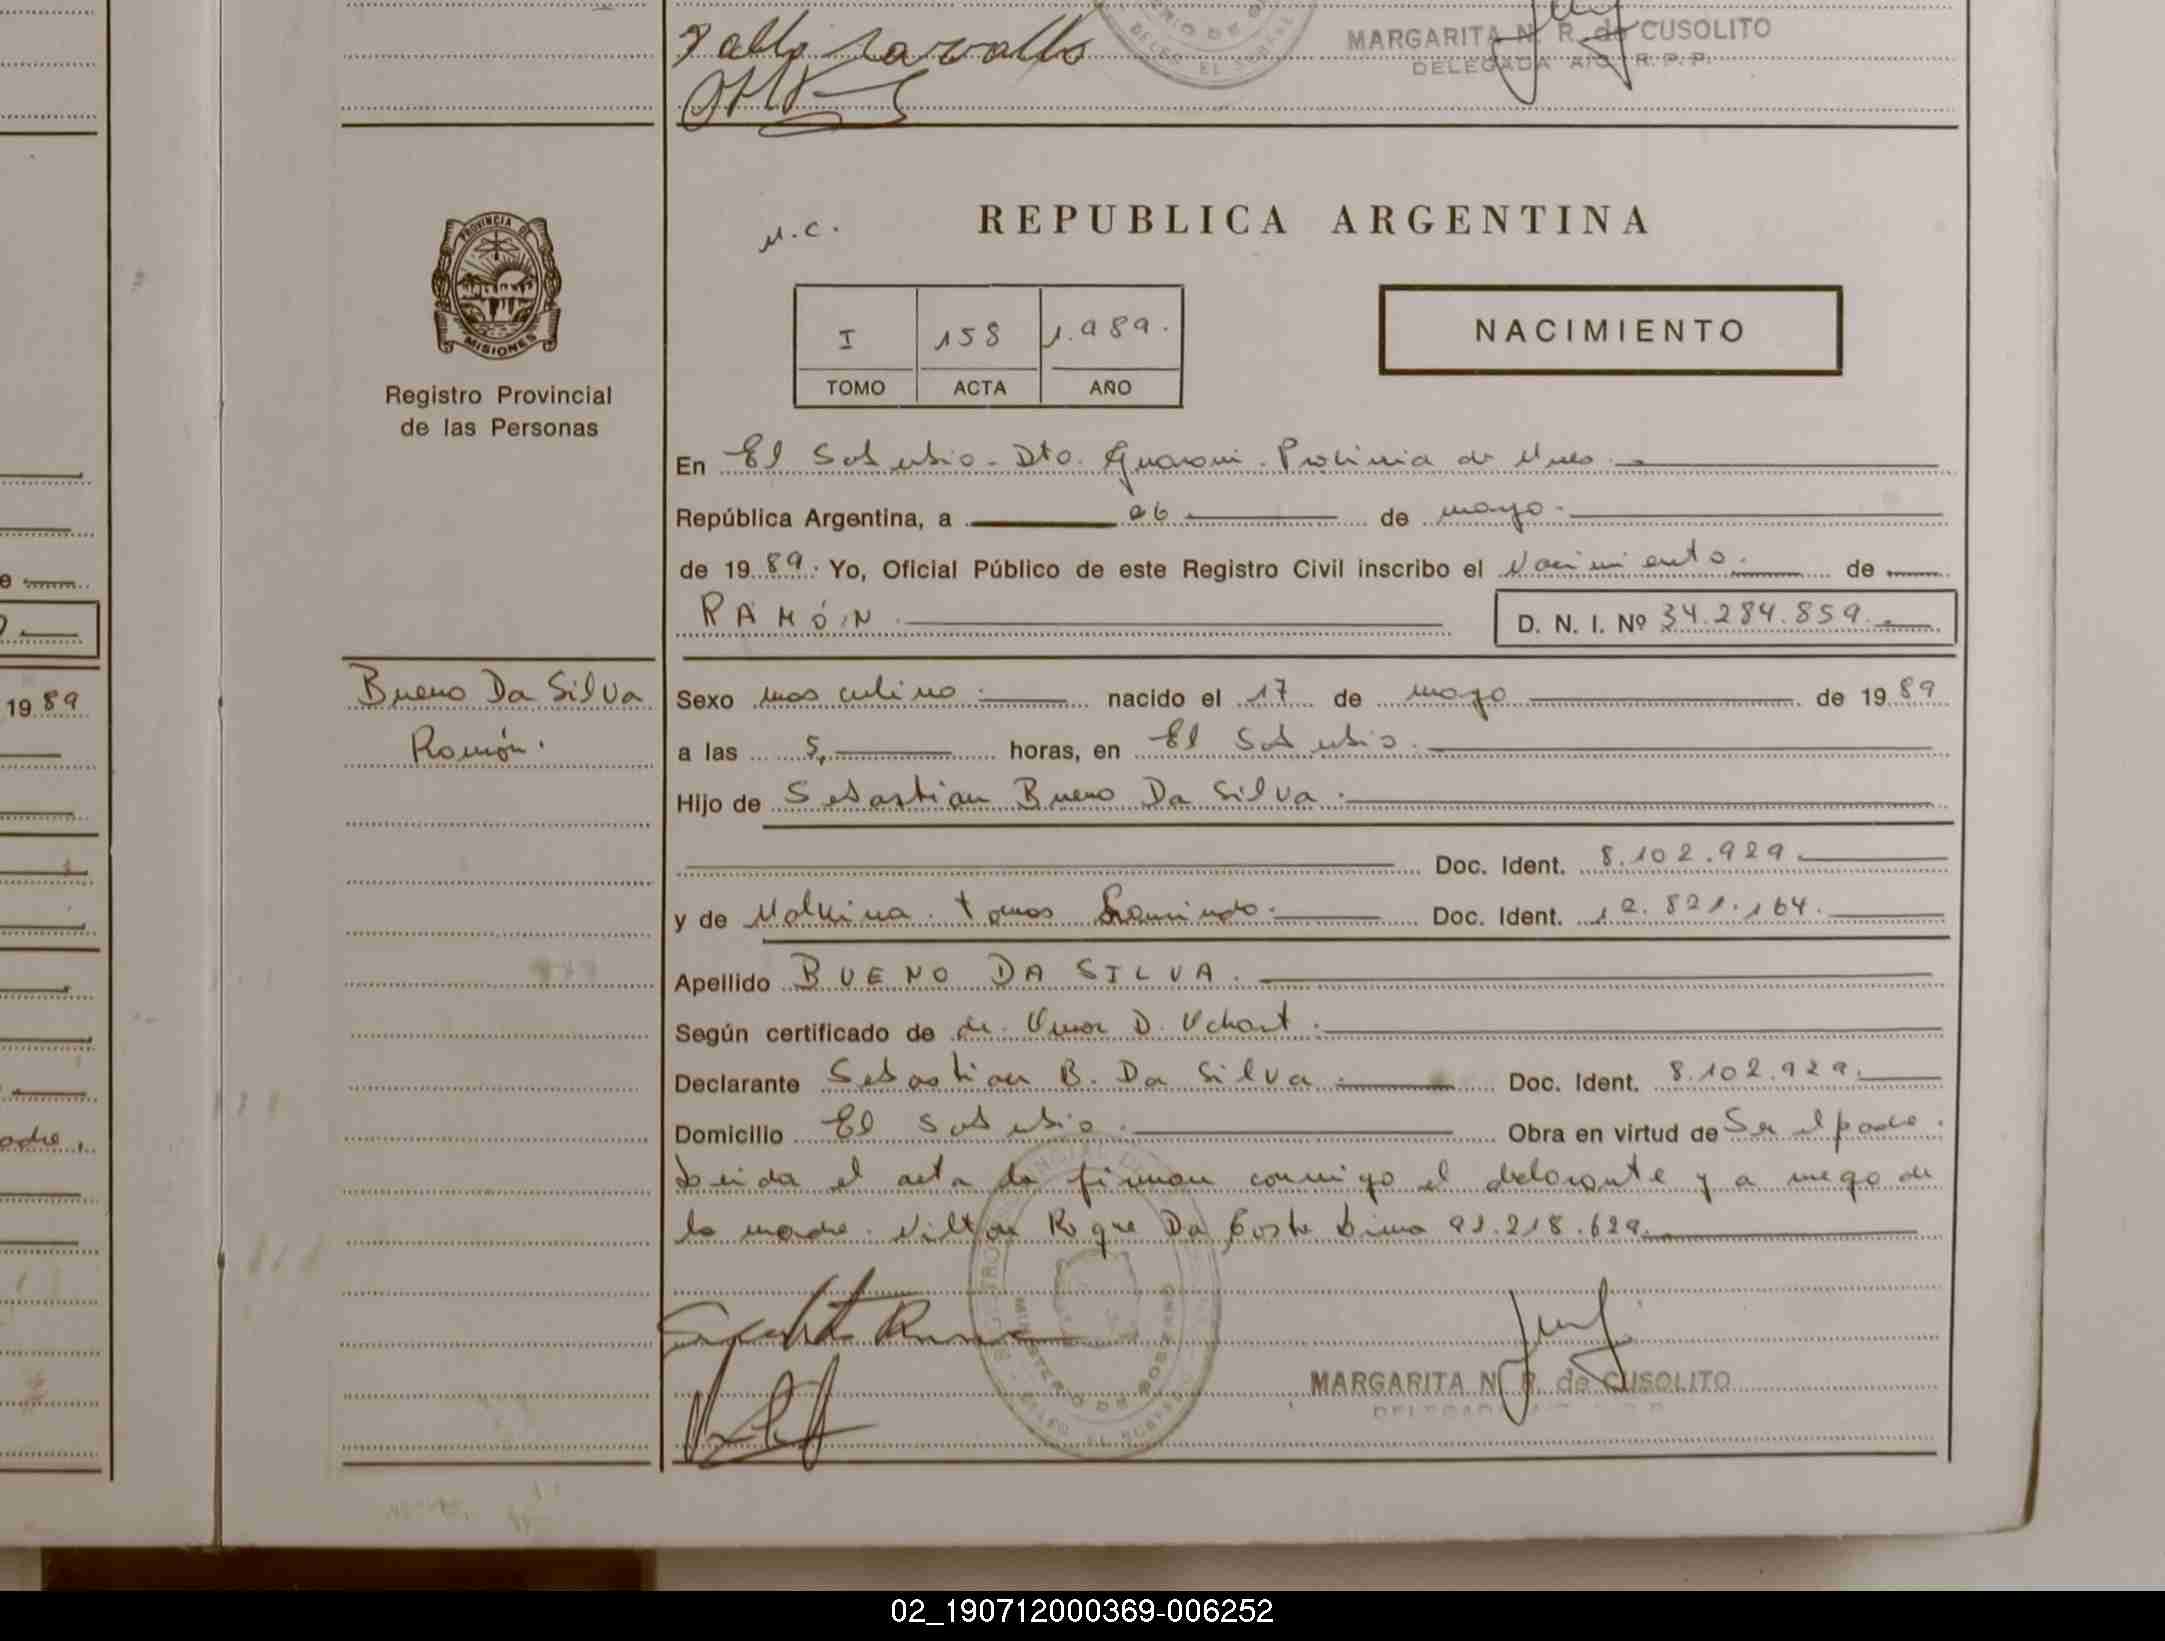 Pablo Carvallo
MARGARITA N. R. de CUSOLITO
DELEGADA A/C. R.P.P.
PROVINCIA DE
MISIONES
Registro Provincial
de las Personas
REPUBLICA ARGENTINA
I 158 1.989.
TOMO ACTA AÑO
NACIMIENTO
En El Soberbio - Dto. Guarani. Provincia de Mnes.
República Argentina, a 26 de mayo.
de 1989. Yo, Oficial Público de este Registro Civil inscribo el Nacimiento. de
RAMÓN. D. N. I. Nº 34.284.859.
Bueno Da Silva
Ramón.
Sexo masculino. nacido el 17 de mayo de 1989
a las 5, horas, en El Soberbio.
Hijo de Sebastian Bueno Da Silva.
Doc. Ident. 8.102.929.
y de Malvina Doc. Ident. 12.821.164.
Apellido BUENO DA SILVA.
Según certificado de dr. D.
Declarante Sebastian B. Da Silva. Doc. Ident. 8.102.929.
Domicilio El Soberbio. Obra en virtud de Ser el padre.
Leida el acta la firman conmigo el declarante y a ruego de
la madre. Roque Da Costa Lima 92.218.629.
MARGARITA N. R. de CUSOLITO
19 89
02_190712000369-006252